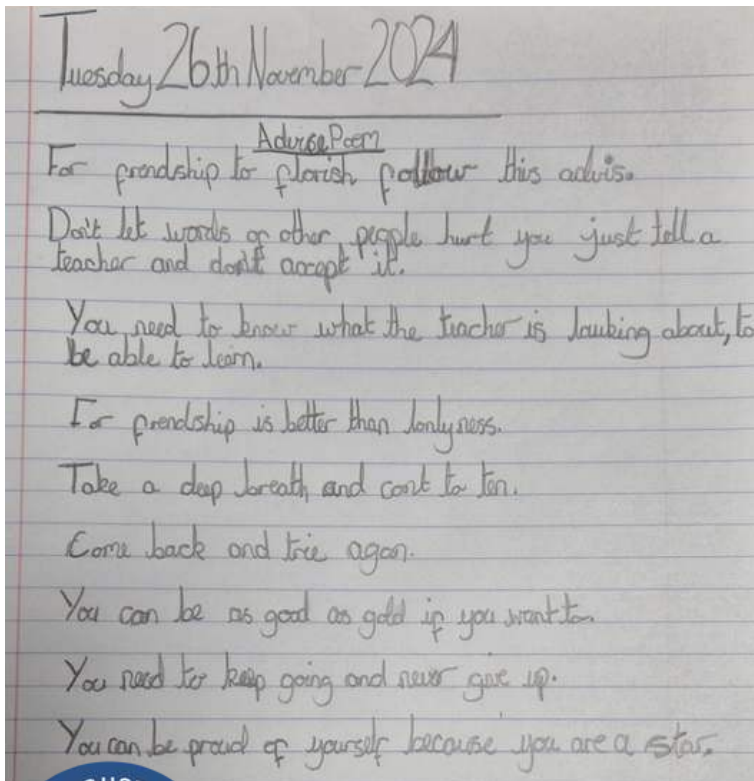 Tuesday 26th November 2024
Advise Poem
For frendship to florish follow this advis.
Don't let words of other people hurt you just tell a
teacher and don't accept it.
You need to know what the teacher is tauking about, to
be able to learn.
For frendship is better than lonlyness.
Take a deep breath and cont to ten.
Come back and trie agan.
You can be as good as gold if you want to.
You need to keep going and never give up.
You can be proud of yourself because you are a star.